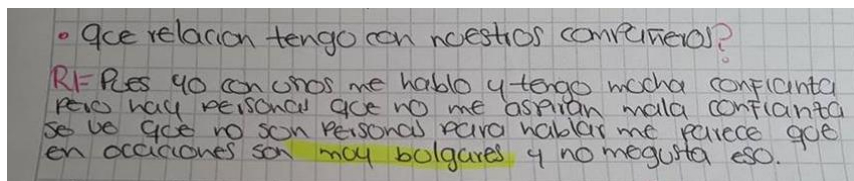 • que relacion tengo con nuestros compañeros?
R/= Pues yo con unos me hablo y tengo mucha confianta
pero hay personas que no me aspiran mala confianta
se ve que no son personas para hablar me parece que
en ocaciones son muy bulgares y no megusta eso.